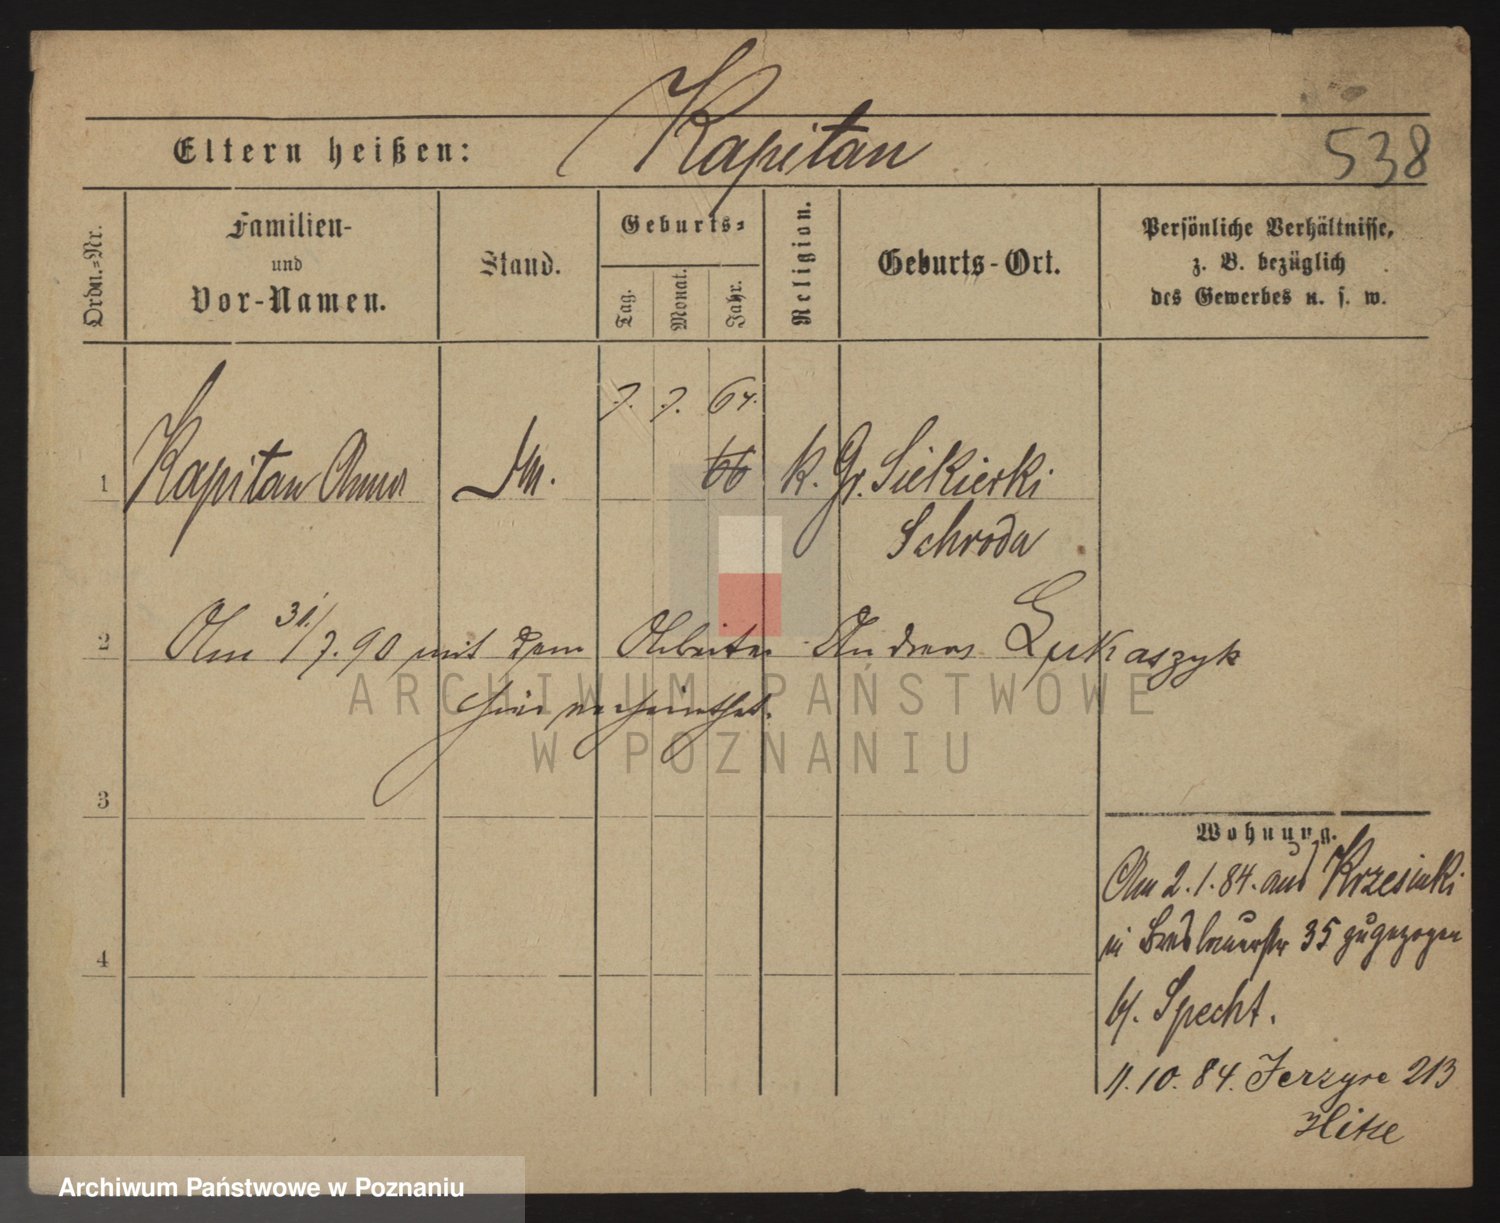 Kapitan
Eltern heißen:
538
Ordn.-Nr.
Familien-
und
Vor-Namen.
Stand.
Geburts-
Tag.
Monat.
Jahr.
Religion.
Geburts-Ort.
Persönliche Verhältnisse,
z. B. bezüglich
des Gewerbes u. s. w.
7. 7. 64.
1 Kapitan Anna 66 k. Gr. Siekierki
Schroda
2 Am 31./7. 90 mit dem Arbeiter Andreas Lukaszyk
hier verheirathet.
3
4
Wohnung.
Am 2. 1. 84. aus Krzesinki
in Breslauerstr 35 zugezogen
b/. Specht.
10. 84. Jerzyce 213
Hitze
ARCHIWUM PAŃSTWOWE
W POZNANIU
Archiwum Państwowe w Poznaniu